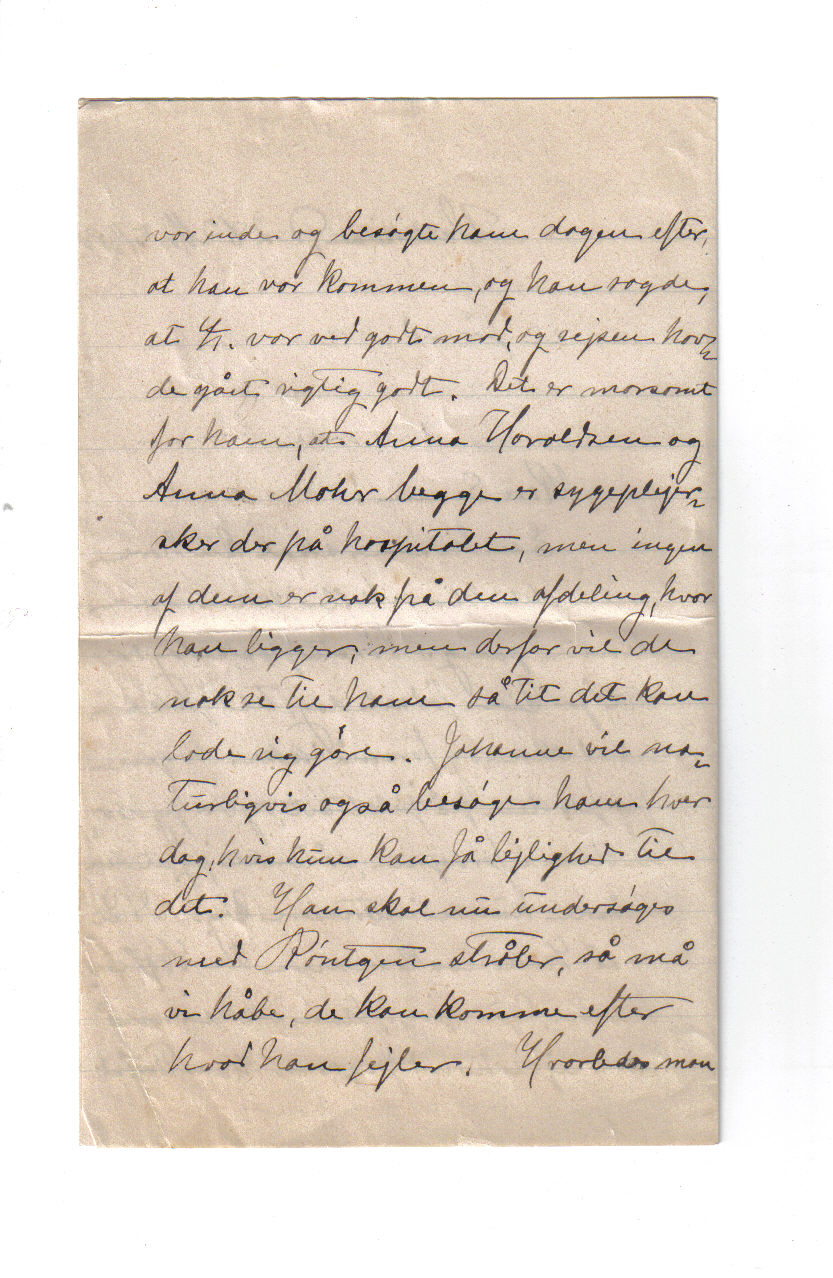 var inde og besøgte ham dagen efter,
at han var kommen, og han sagde,
at H. var ved godt mod, og rejsen hav=
de gået rigtig godt. Det er morsomt
for ham, at Anna Haraldsen og
Anna Mohr begge er sygeplejer=
sker der på hospitalet, men ingen
af dem er nok på den afdeling, hvor
han ligger, men derfor vil de
nok se til ham så tit det kan
lade sig göre. Johanne vil na=
turligvis også besøge ham hver
dag, hvis hun kan få lejlighed til
det. Han skal nu undersøges
med Röntgen stråler, så må
vi håbe, de kan komme efter
hvad han fejler. Hvorledes man